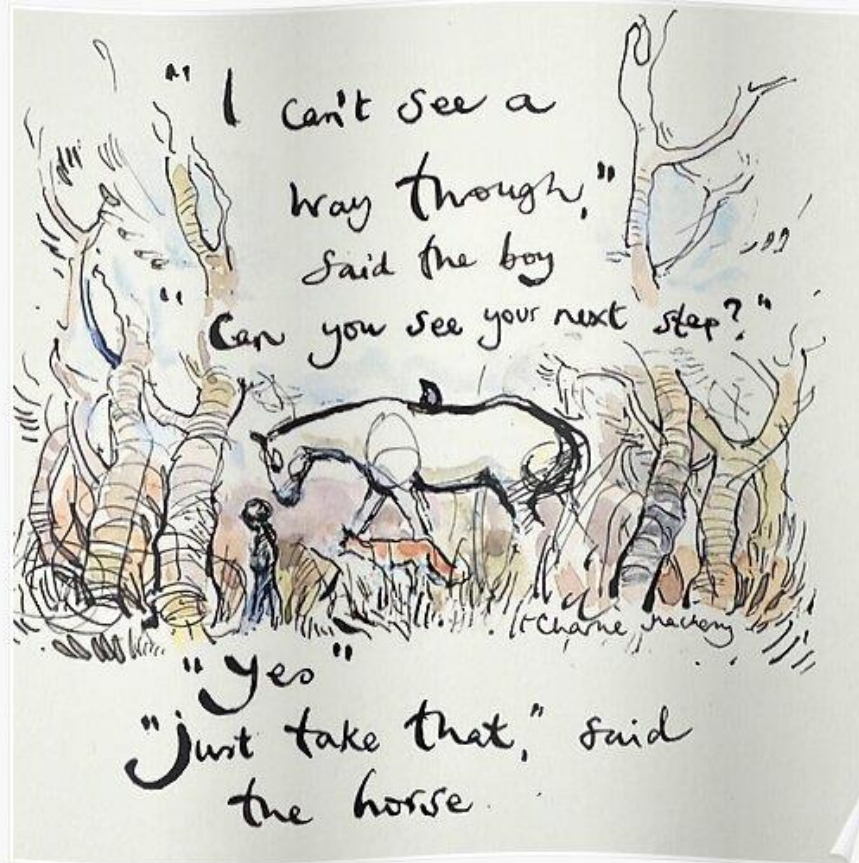 "I can't see a
way through,"
said the boy
"Can you see your next step?"
Charlie Mackesy
"Yes"
"just take that," said
the horse